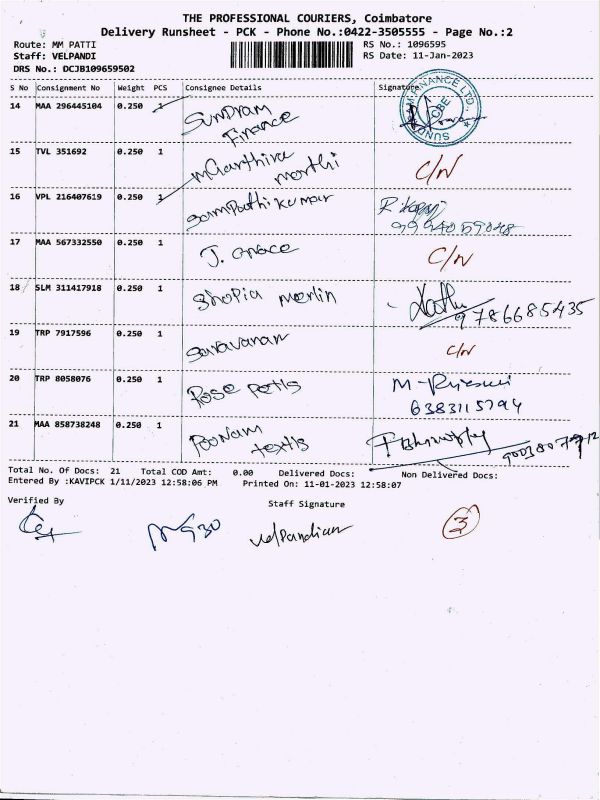 THE PROFESSIONAL COURIERS, Coimbatore
Delivery Runsheet - PCK - Phone No.:0422-3505555 - Page No.:2
Route: MM PATTI
RS No.: 1096595
Staff: VELPANDI
RS Date: 11-Jan-2023
DRS No.: DCJB109659502
S No Consignment No Weight PCS Consignee Details Signature
14 MAA 296445104 0.250 1 Sundram Finance
15 TVL 351692 0.250 1 C/N
16 VPL 216407619 0.250 1 Sampathi kumar
17 MAA 567332550 0.250 1 J. Grace C/N
18 SLM 311417918 0.250 1 Shopia merlin 9786685435
19 TRP 7917596 0.250 1 Saravanan C/N
20 TRP 8058076 0.250 1 Rose petls
6383115794
21 MAA 858738248 0.250 1 Poonam textls
Total No. Of Docs: 21 Total COD Amt: 0.00 Delivered Docs: Non Delivered Docs:
Entered By :KAVIPCK 1/11/2023 12:58:06 PM Printed On: 11-01-2023 12:58:07
Verified By
Staff Signature
velPandian
3